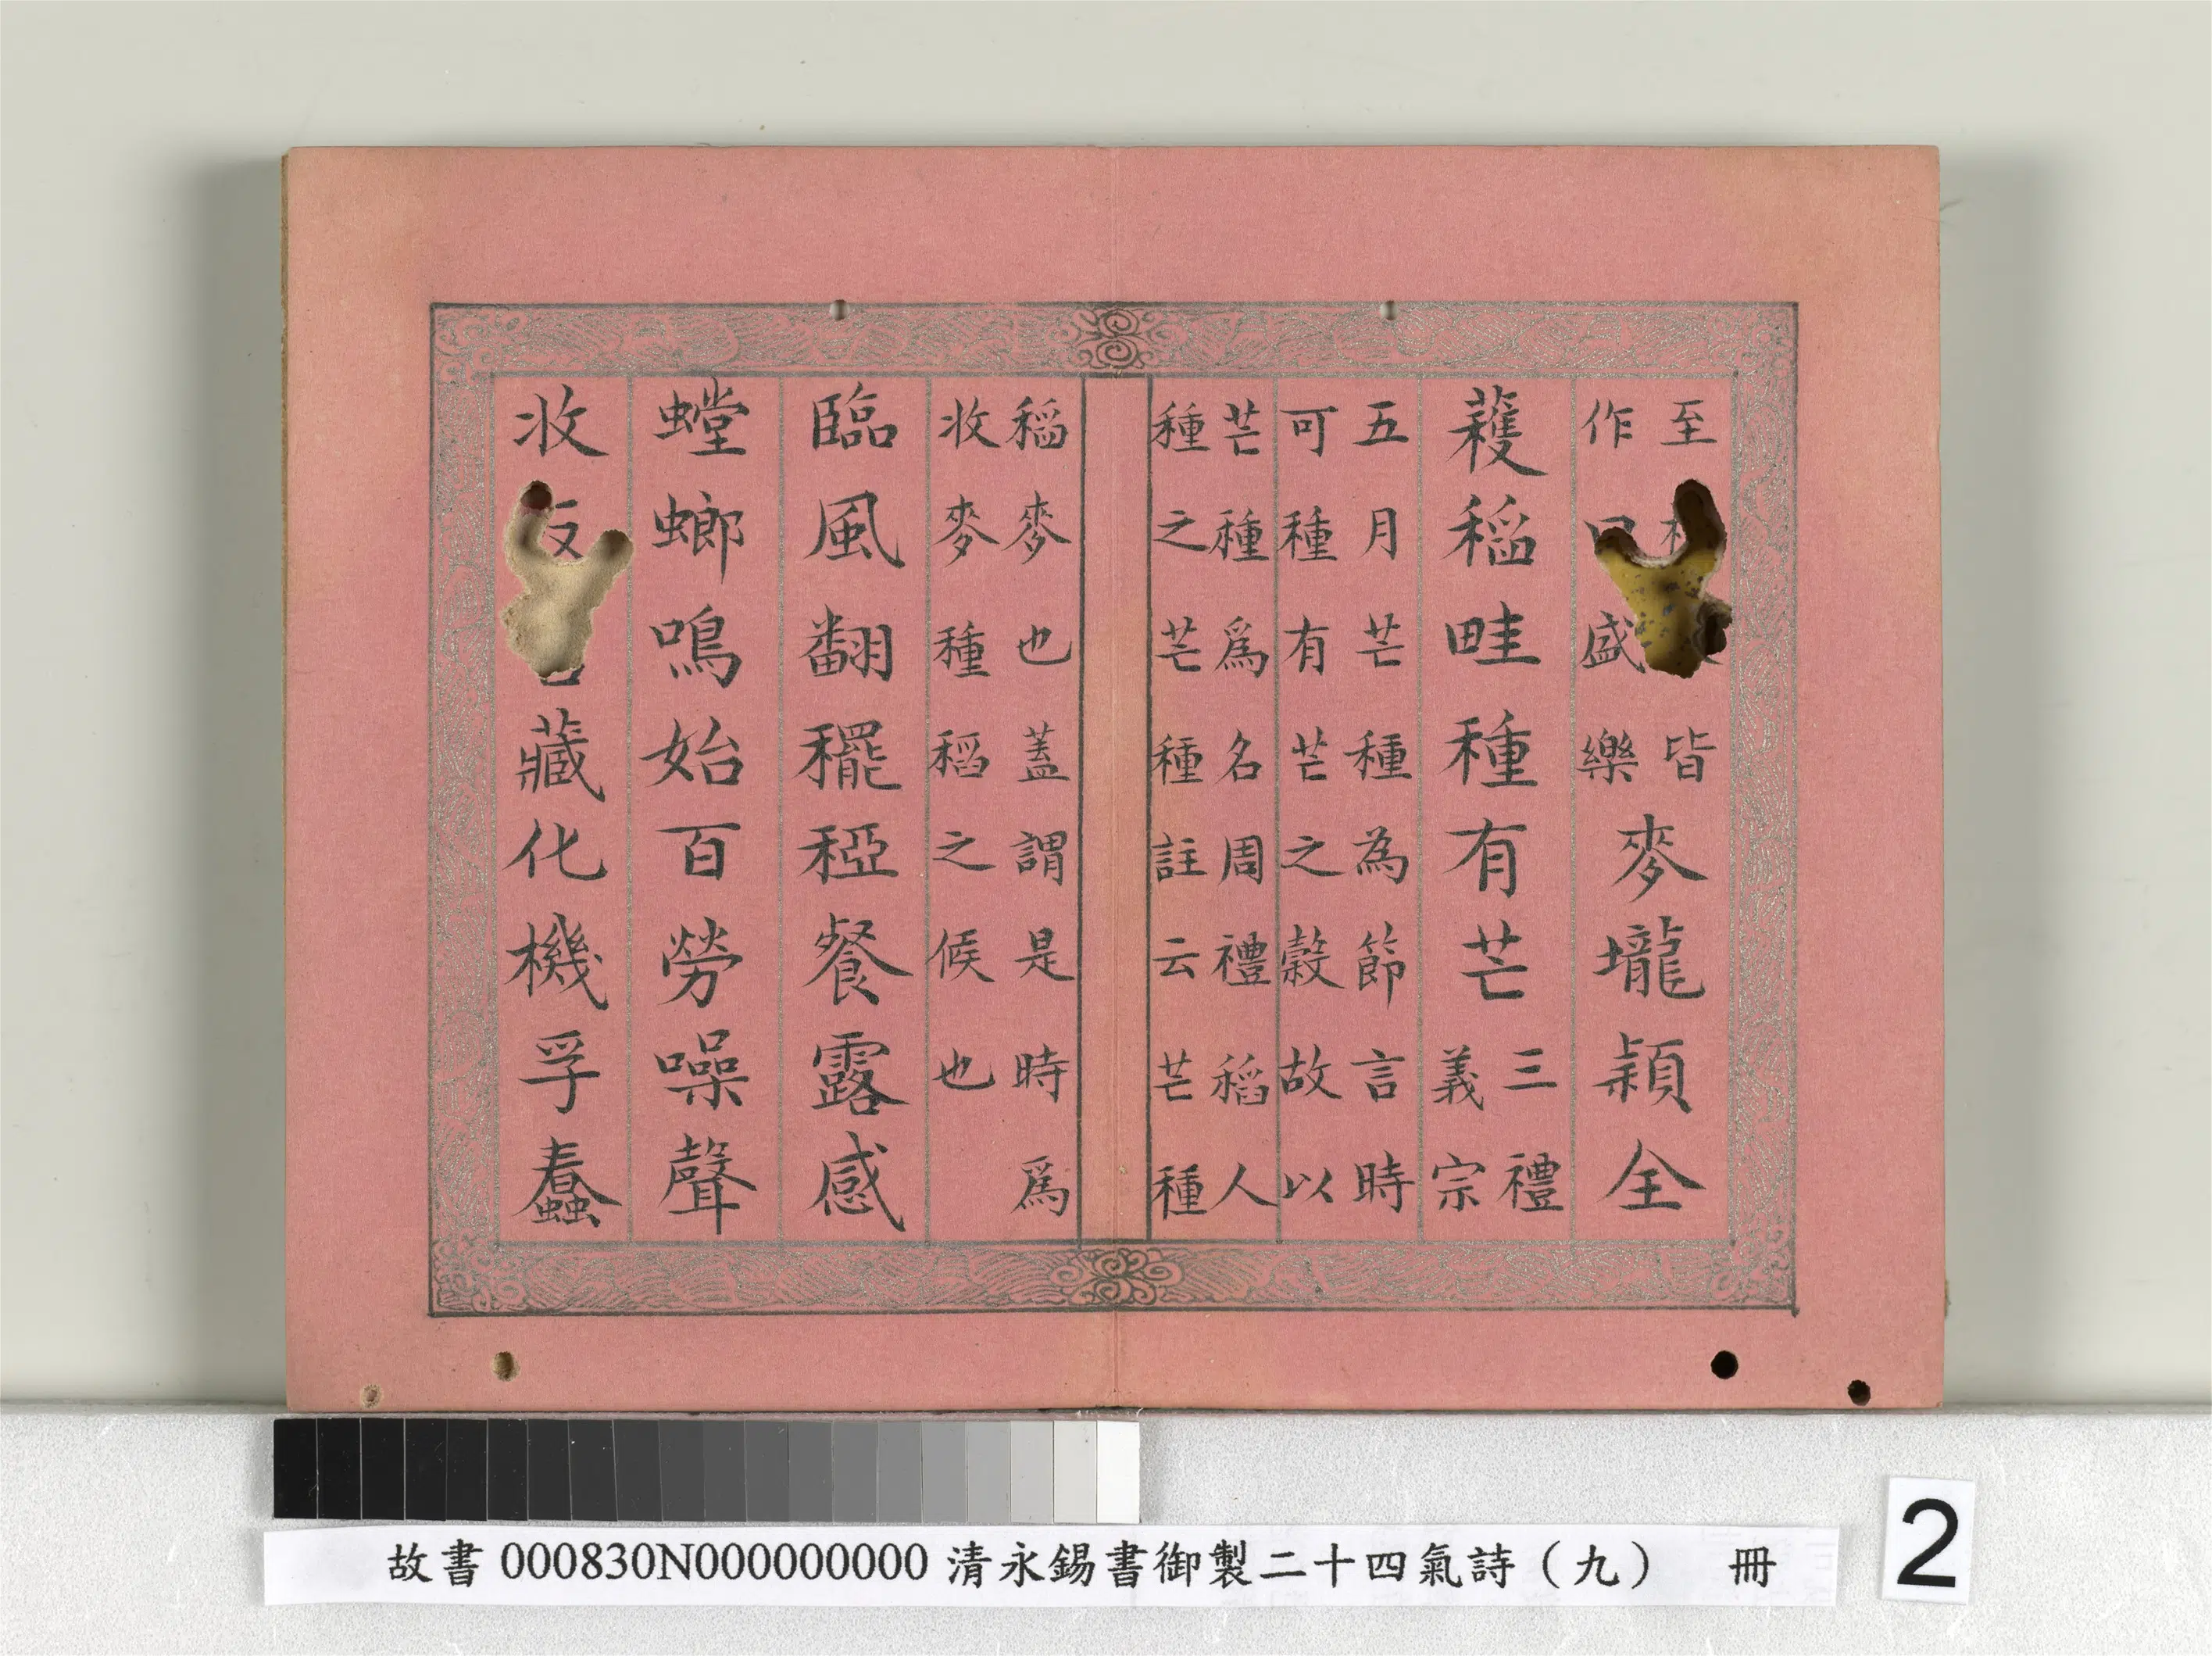 至皆
作盛樂
麥壠穎全
穫稻畦種有芒
三禮
義宗
五月芒種為節言時
可種有芒之穀故以
芒種爲名周禮稻人
種之芒種註云芒種
稻麥也蓋謂是時爲
收麥種稻之候也
臨風翻䆉稏餐露感
螳螂鳴始百勞噪聲
收藏化機孚蠢
故書 000830N000000000 清永錫書御製二十四氣詩（九） 冊
2